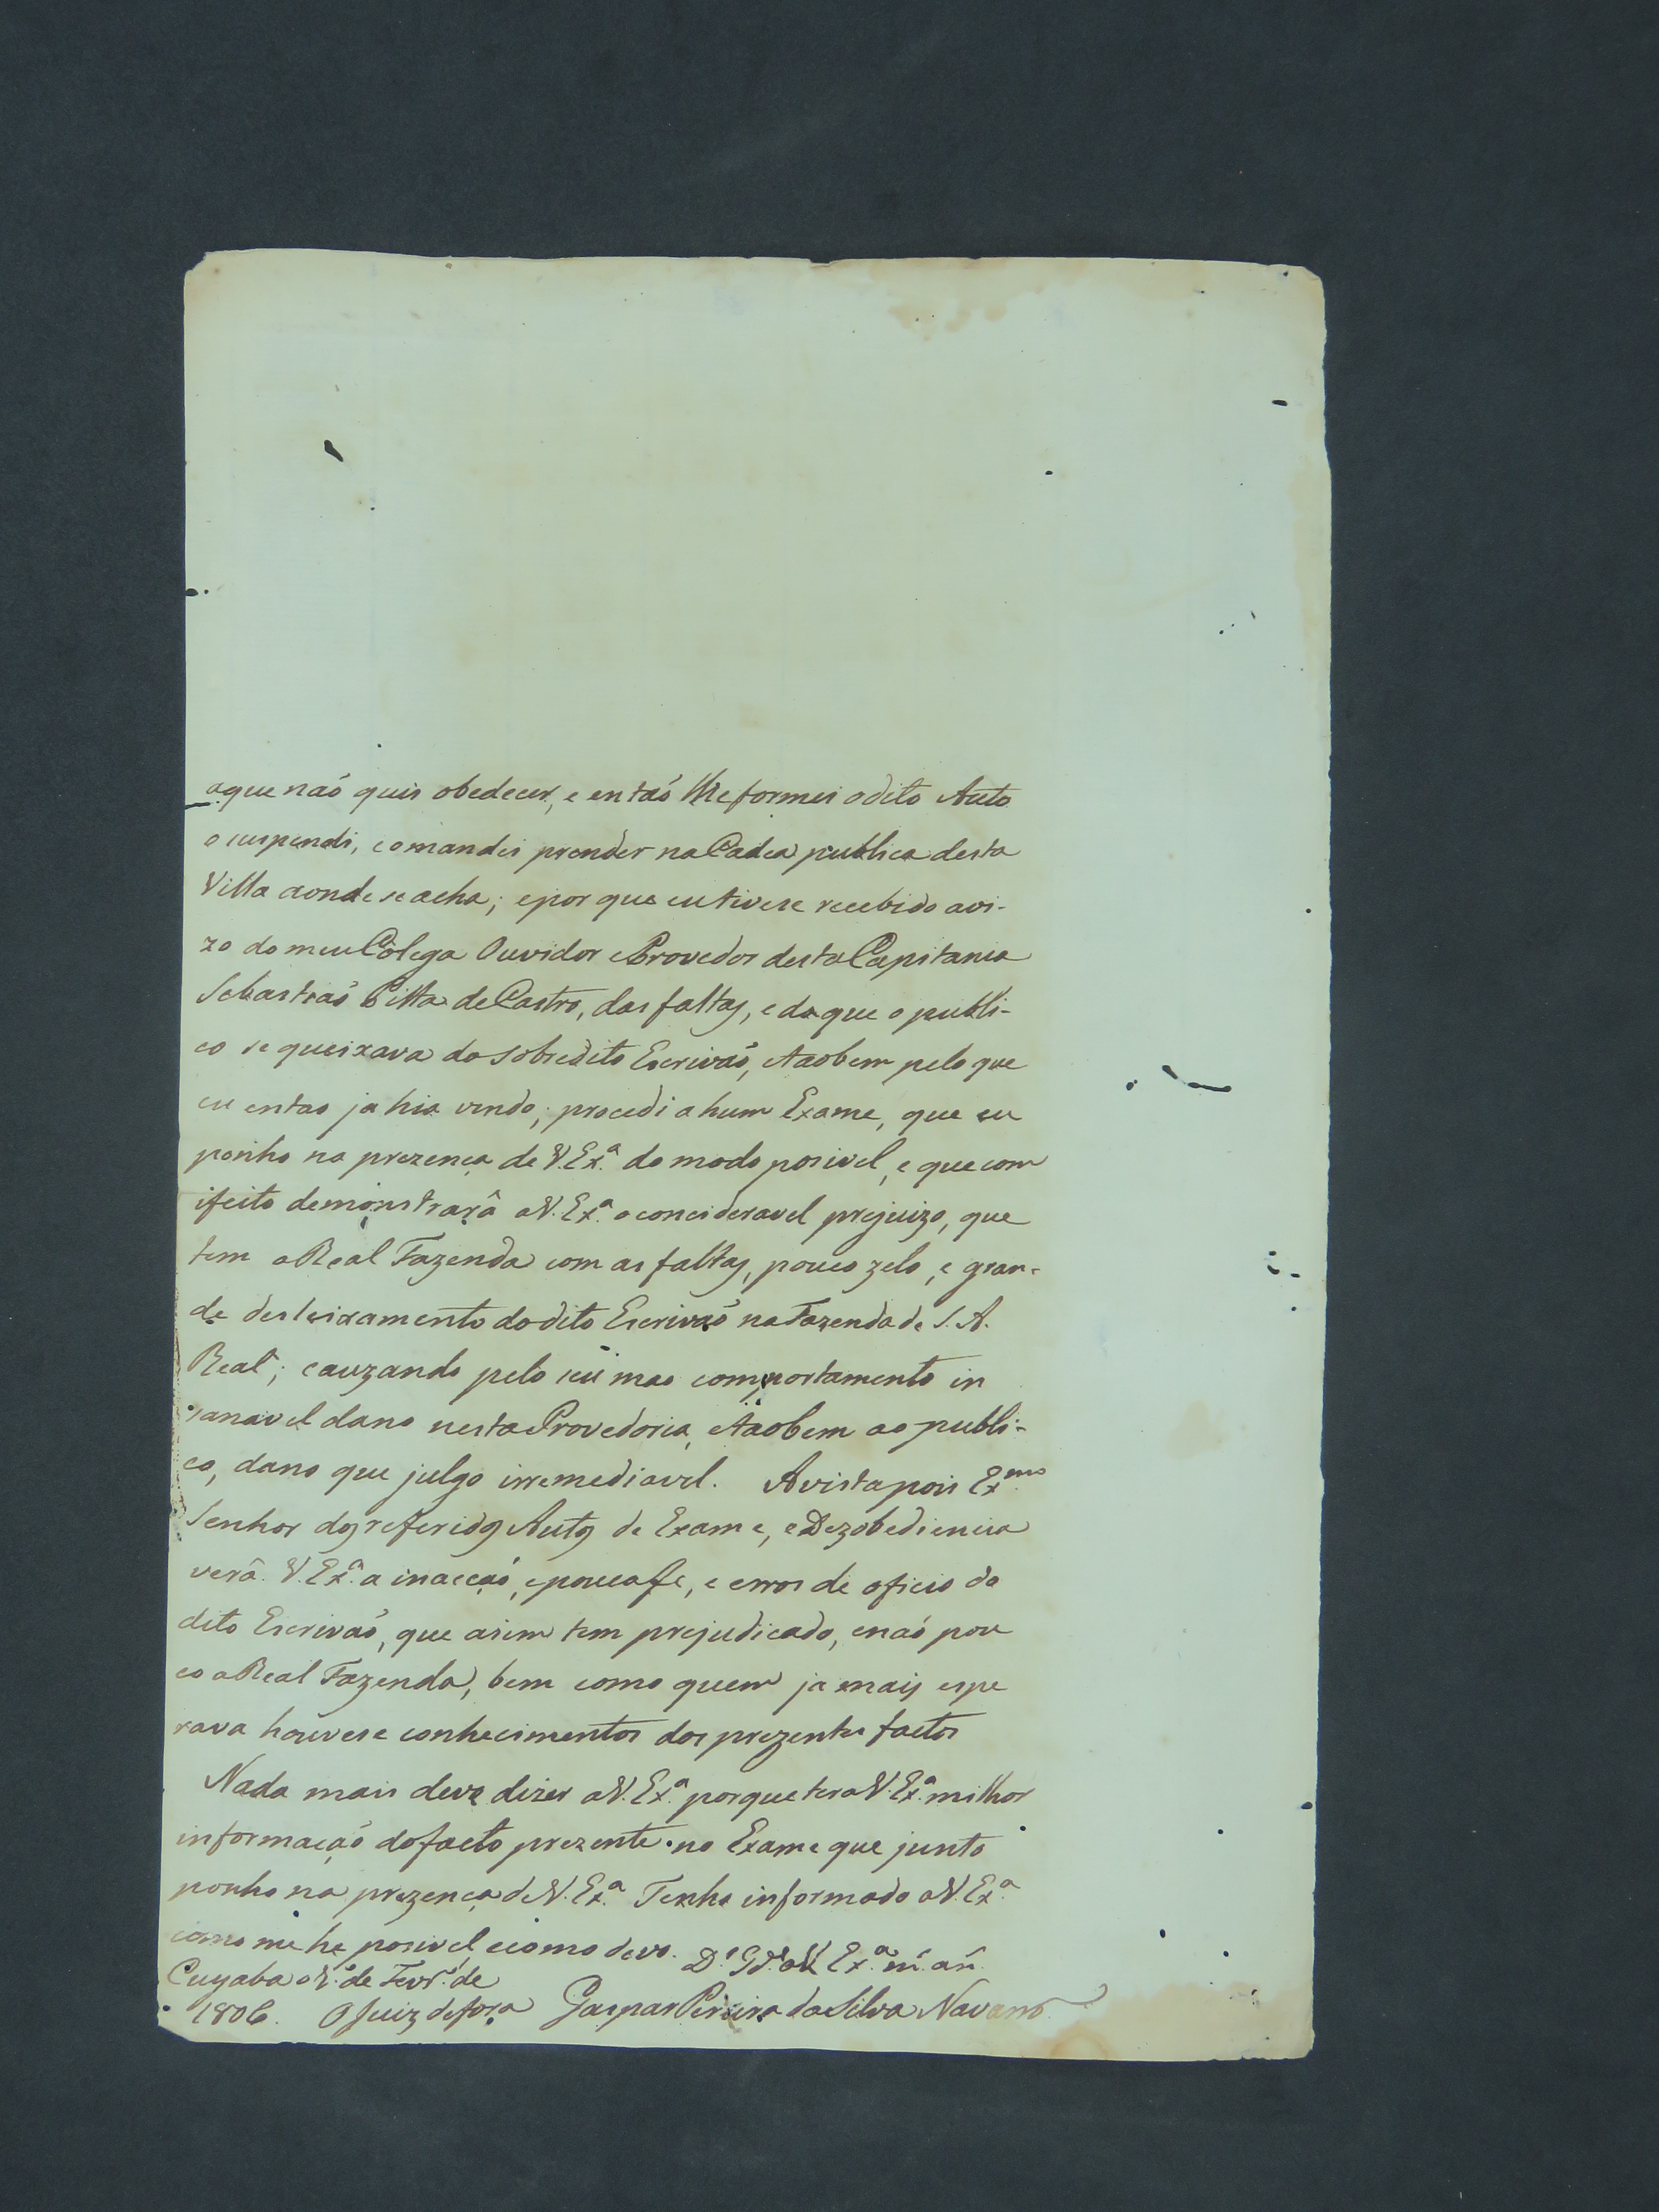 aque naõ quis obedecer, e entaõ lhe formei odito Auto
o suspendi, e omandei prender na Cadea publica desta
Villa aonde se acha; epor que eu tivese recebido avi-
zo do meu Cólega Ouvidor eProvedor desta Capitania
Sebastiaõ Pitta de Castro, das faltas, e do que o publi-
co se queixava do sobredito Escrivaõ, etaobem pelo que
eu entao ja hia vendo; procedi a hum Exame, que eu
ponho na prezença de V. Exª. do modo posivel, e que com
ifeito demonstrarâ aV. Exª. o concideravel prejuizo, que
tem aReal Fazenda com as faltas, pouco zelo, e gran-
de desleixamento do dito Escrivaõ na Fazenda de S. A.
Real; cauzando pelo seu mao comportamento in
sanavel dano nesta Provedoria, etaobem ao publi-
co, dano que julgo irremediavel. Avista pois Exmo.
Senhor dos referidos Autos de Exame, e Dezobediencia
verâ V. Exª. a inacçaõ, epouca fe, e erros de oficio do
dito Escrivaõ, que asim tem prejudicado, enaõ pou
co aReal Fazenda, bem como quem ja mais espe
rava houvese conhecimentos dos prezentes factos
Nada mais devo dizer aV. Exª. porque tera V. Exª. milhor
informaçaõ do facto prezente no Exame que junto
ponho na prezença de V. Exª. Tenho informado aV. Exª.
como me he posivel, ecomo devo. Ds. Gde. aV. Exª. m. an.
Cuyaba de Fevro. de
1806. O Juiz de fora Gaspar Pereira da Silva Navarro